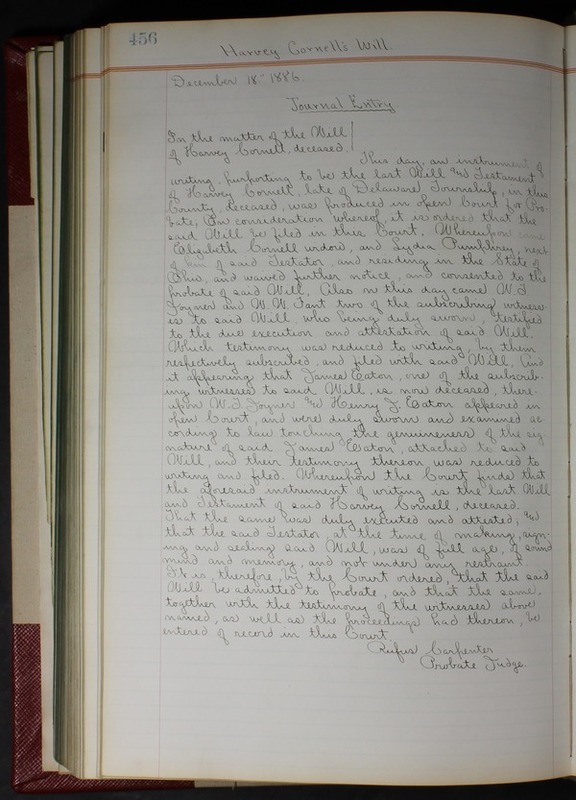 456
Harvey Cornell's Will.
December 18" 1886.
Journal Entry
In the matter of the Will
of Harvey Cornell, deceased.
This day, an instrument of
writing, purporting to be the last Will and Testament
of Harvey Cornell, late of Delaware Township, in this
County, deceased, was produced in open Court for Pro-
bate, On consideration whereof, it is ordered that the
said Will be filed in this Court. Whereupon came
Elizabeth Cornell widow, and Lydia Pumphrey, next
of kin of said Testator, and residing in the State of
Ohio, and waived further notice, and consented to the
probate of said Will. Also on this day came W. J.
Joyner and W. W. Fant two of the subscribing witness-
es to said Will, who being duly sworn, testified
to the due execution and attestation of said Will.
Which testimony was reduced to writing, by them
respectively subscribed and filed with said Will, And
it appearing that James Eaton, one of the subscrib-
ing witnesses to said Will, is now deceased, there-
upon W. J. Joyner and Henry J. Eaton appeared in
open Court, and were duly sworn and examined ac
cording to law touching the genuineness of the sig
nature of said James Eaton, attached to said
Will, and their testimony thereon was reduced to
writing and filed. Whereupon the Court finds that
the aforesaid instrument of writing is the last Will
and Testament of said Harvey Cornell, deceased.
That the same was duly executed and attested, and
that the said Testator at the time of making, sign-
ing and sealing said Will, was of full age, of sound
mind and memory, and not under any restraint.
It is, therefore, by the Court ordered, that the said
Will be admitted to probate, and that the same,
together with the testimony of the witnesses above
named, as well as the proceedings had thereon, be
entered of record in this Court.
Rufus Carpenter
Probate Judge.